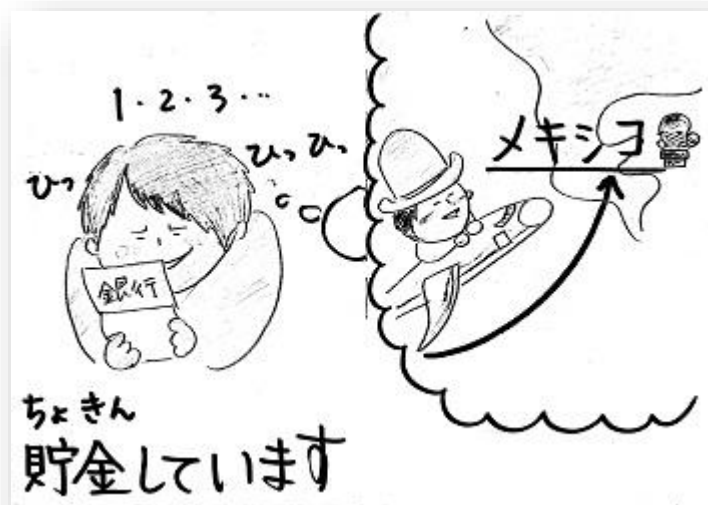 1・2・3…
ひっ
ひっひっ
銀行
メキシコ
ちょきん
貯金しています